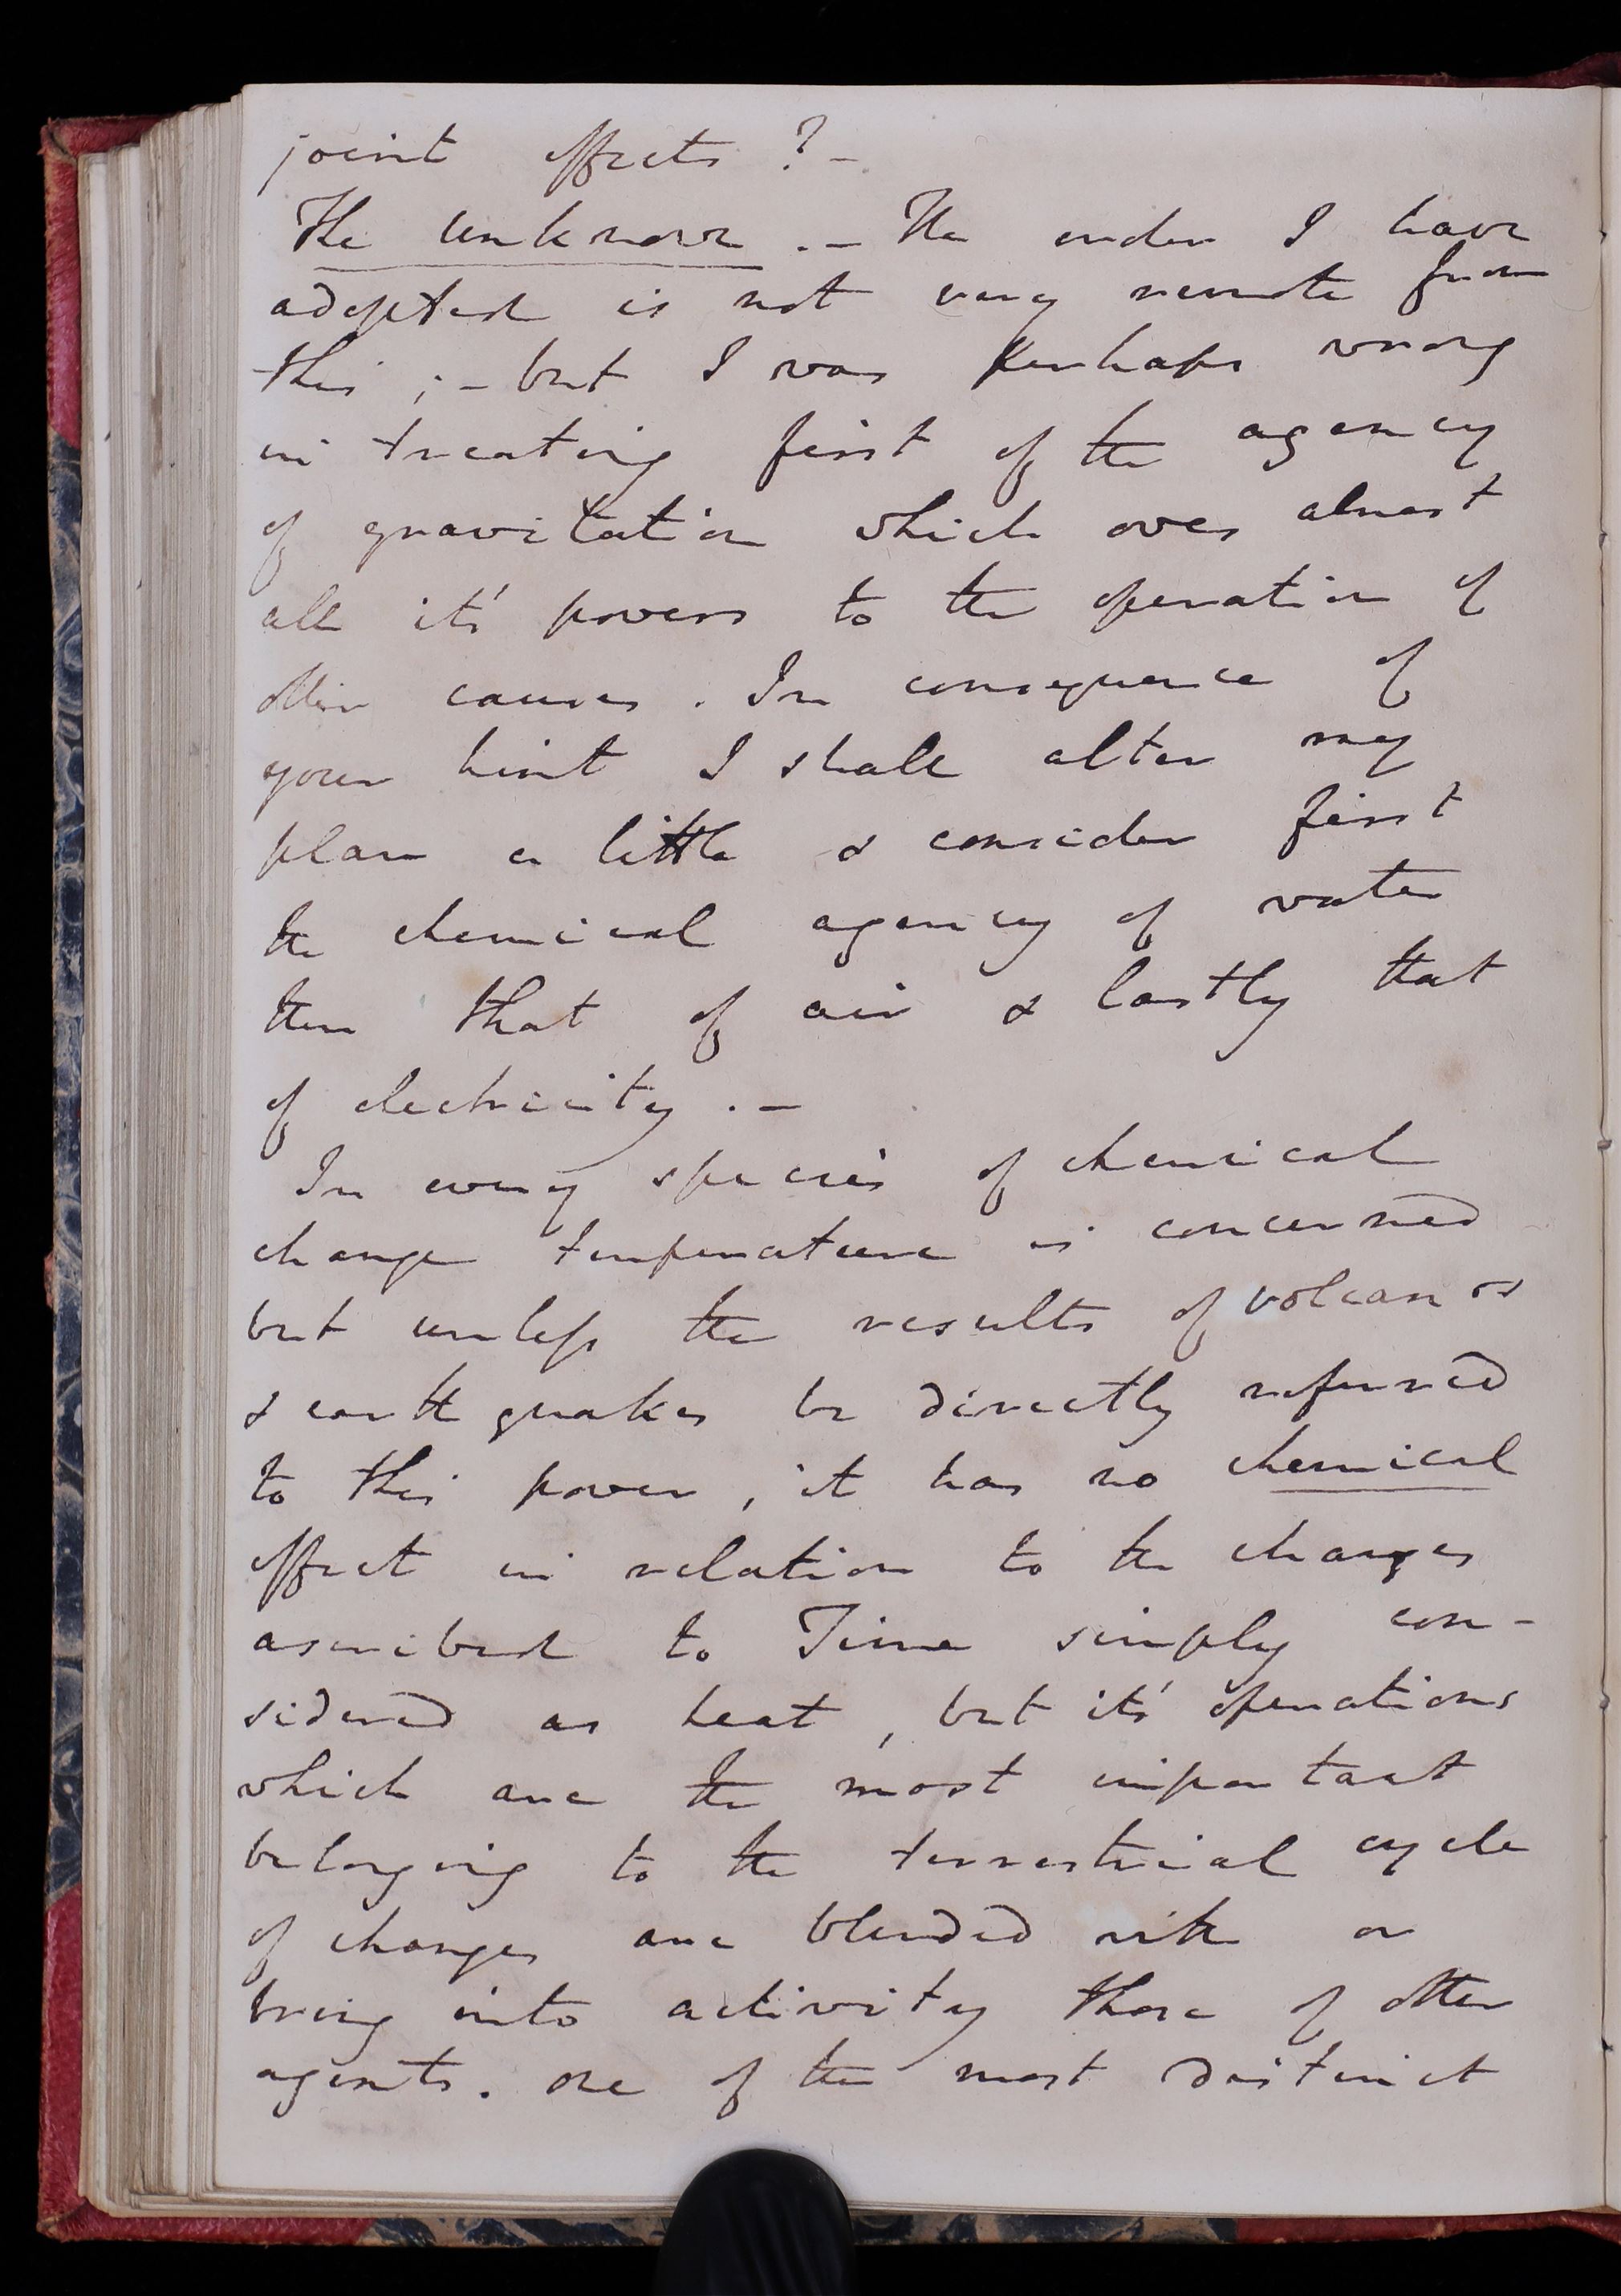 joint effects ? -
The Unknown . - The order I have
adopted is not very remote from
this ; - but I was perhaps wrong
in treating first of the agency
of gravitation which owes almost
all it's powers to the operation of
other causes . In consequence of
your hint I shall alter my
plan a little & consider first
the chemical agency of water
then that of air & lastly that
of electricity . -
In every species of chemical
change temperature is concerned
but unless the results of volcanos
& earthquakes be directly referred
to this power , it has no chemical
effect in relation to the changes
ascribed to Time simply con-
sidered as heat , but it's operations
which are the most important
belonging to the terrestrial cycle
of changes are blended with or
bring into activity those of other
agents . one of the most distinct